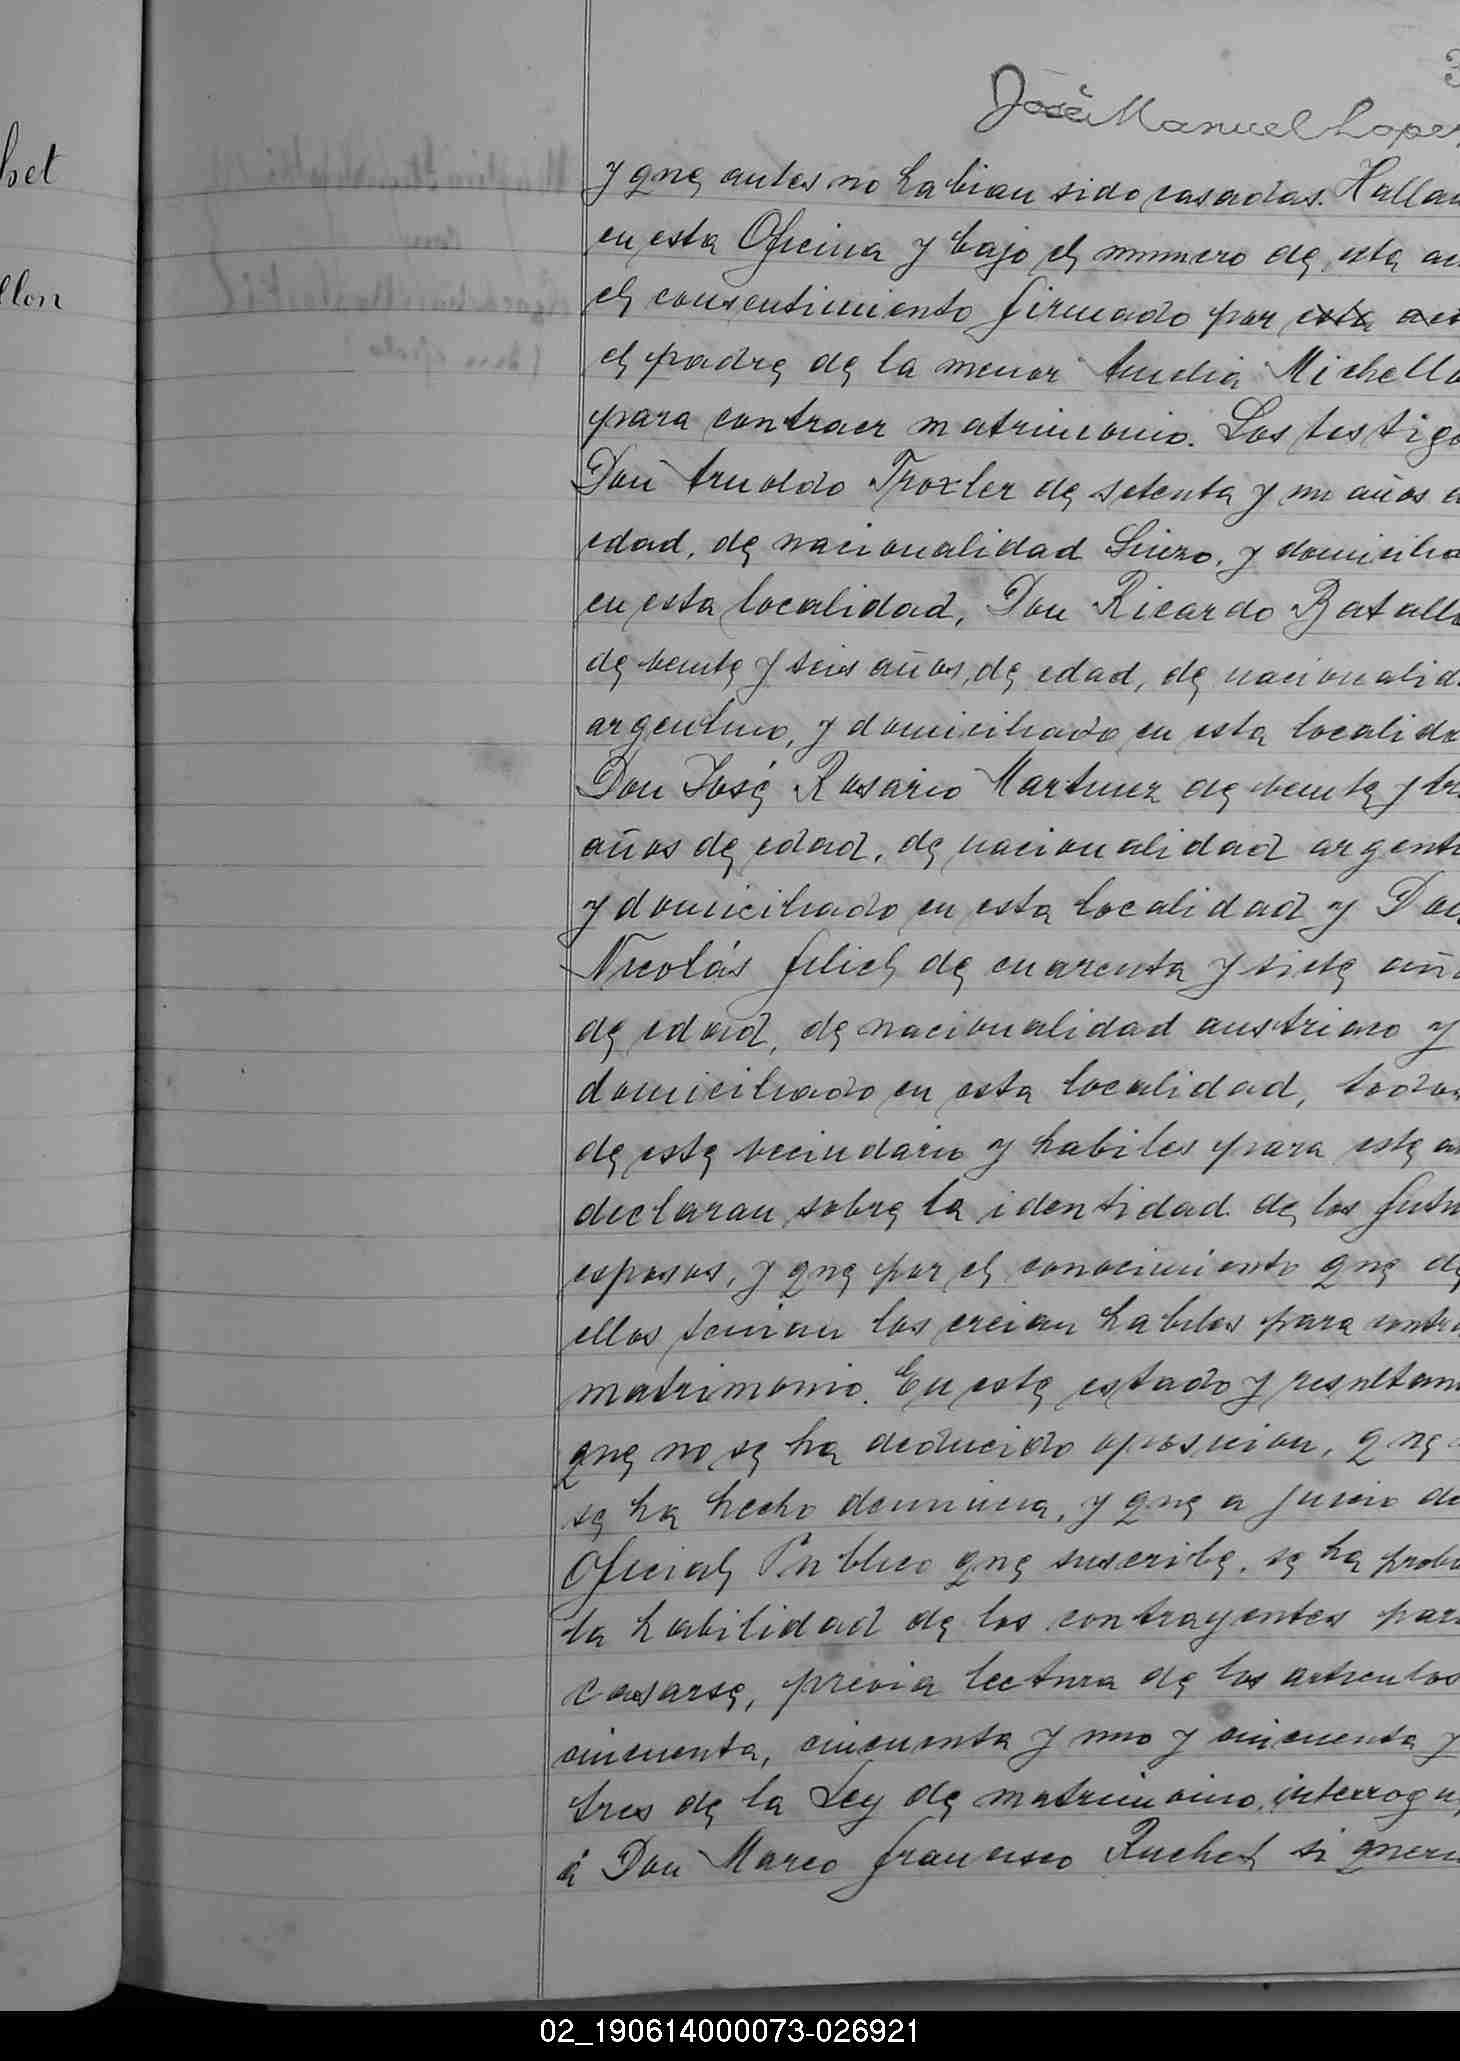 het
llon
3
José Manuel Lopez
y que antes no habian sido casadas. Hallan
en esta Oficina y bajo el numero de esta ac
el consentimiento firmado por esta act
el padre de la menor Amelia Michello
para contraer matrimonio. Los testigo
Don Arnoldo Troxler de setenta y un años d
edad, de nacionalidad Suizo, y domicilia
en esta localidad, Don Ricardo Batalla
de veinte y seis años, de edad, de nacionalid
argentino, y domiciliado en esta localida
Don José Rosario Martinez de veinte y tr
años de edad, de nacionalidad argenti
y domiciliado en esta localidad y Don
Nicolás Jilich de cuarenta y siete año
de edad, de nacionalidad austriaco y
domiciliado en esta localidad, todos
de este vecindario y habiles para este a
declaran sobre la identidad de los futu
esposos, y que por el conocimiento que de
ellos tenian los creian habiles para contra
matrimonio. En este estado y resultan
que no se ha deducido oposicion, que
se ha hecho denuncia, y que a juicio de
Oficial Publico que suscribe, se ha proba
la habilidad de los contrayentes para
casarse, previa lectura de los articulos
cincuenta, cincuenta y uno y cincuenta y
tres de la Ley de matrimonio, interrogu
á Don Marco Francisco Ruchet si queri
02_190614000073-026921